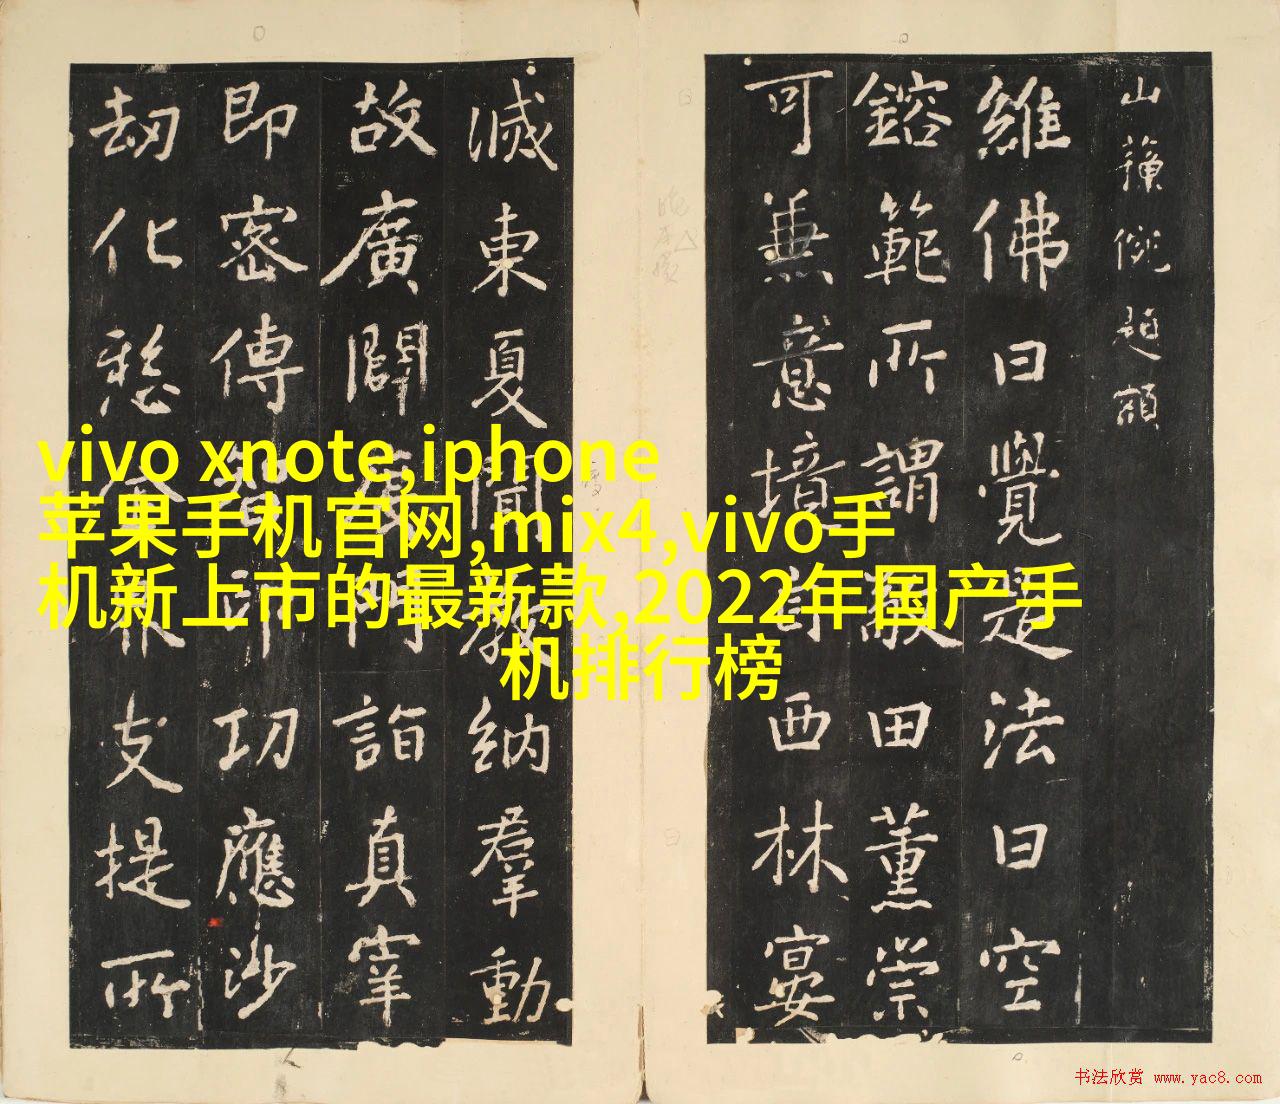 vivo xnote,iphone
苹果手机官网,mix4,vivo手
机新上市的最新款,2022年国产手
机排行榜
山 額
維佛曰覺是法曰空
鎔範所謂 田薰崇
可兼意境 西林宴
滅東夏聞教納羣動
故廣闢 門詣真宰
即密傳 印功應沙
劫化 支提所
书法欣赏 www.yac8.com